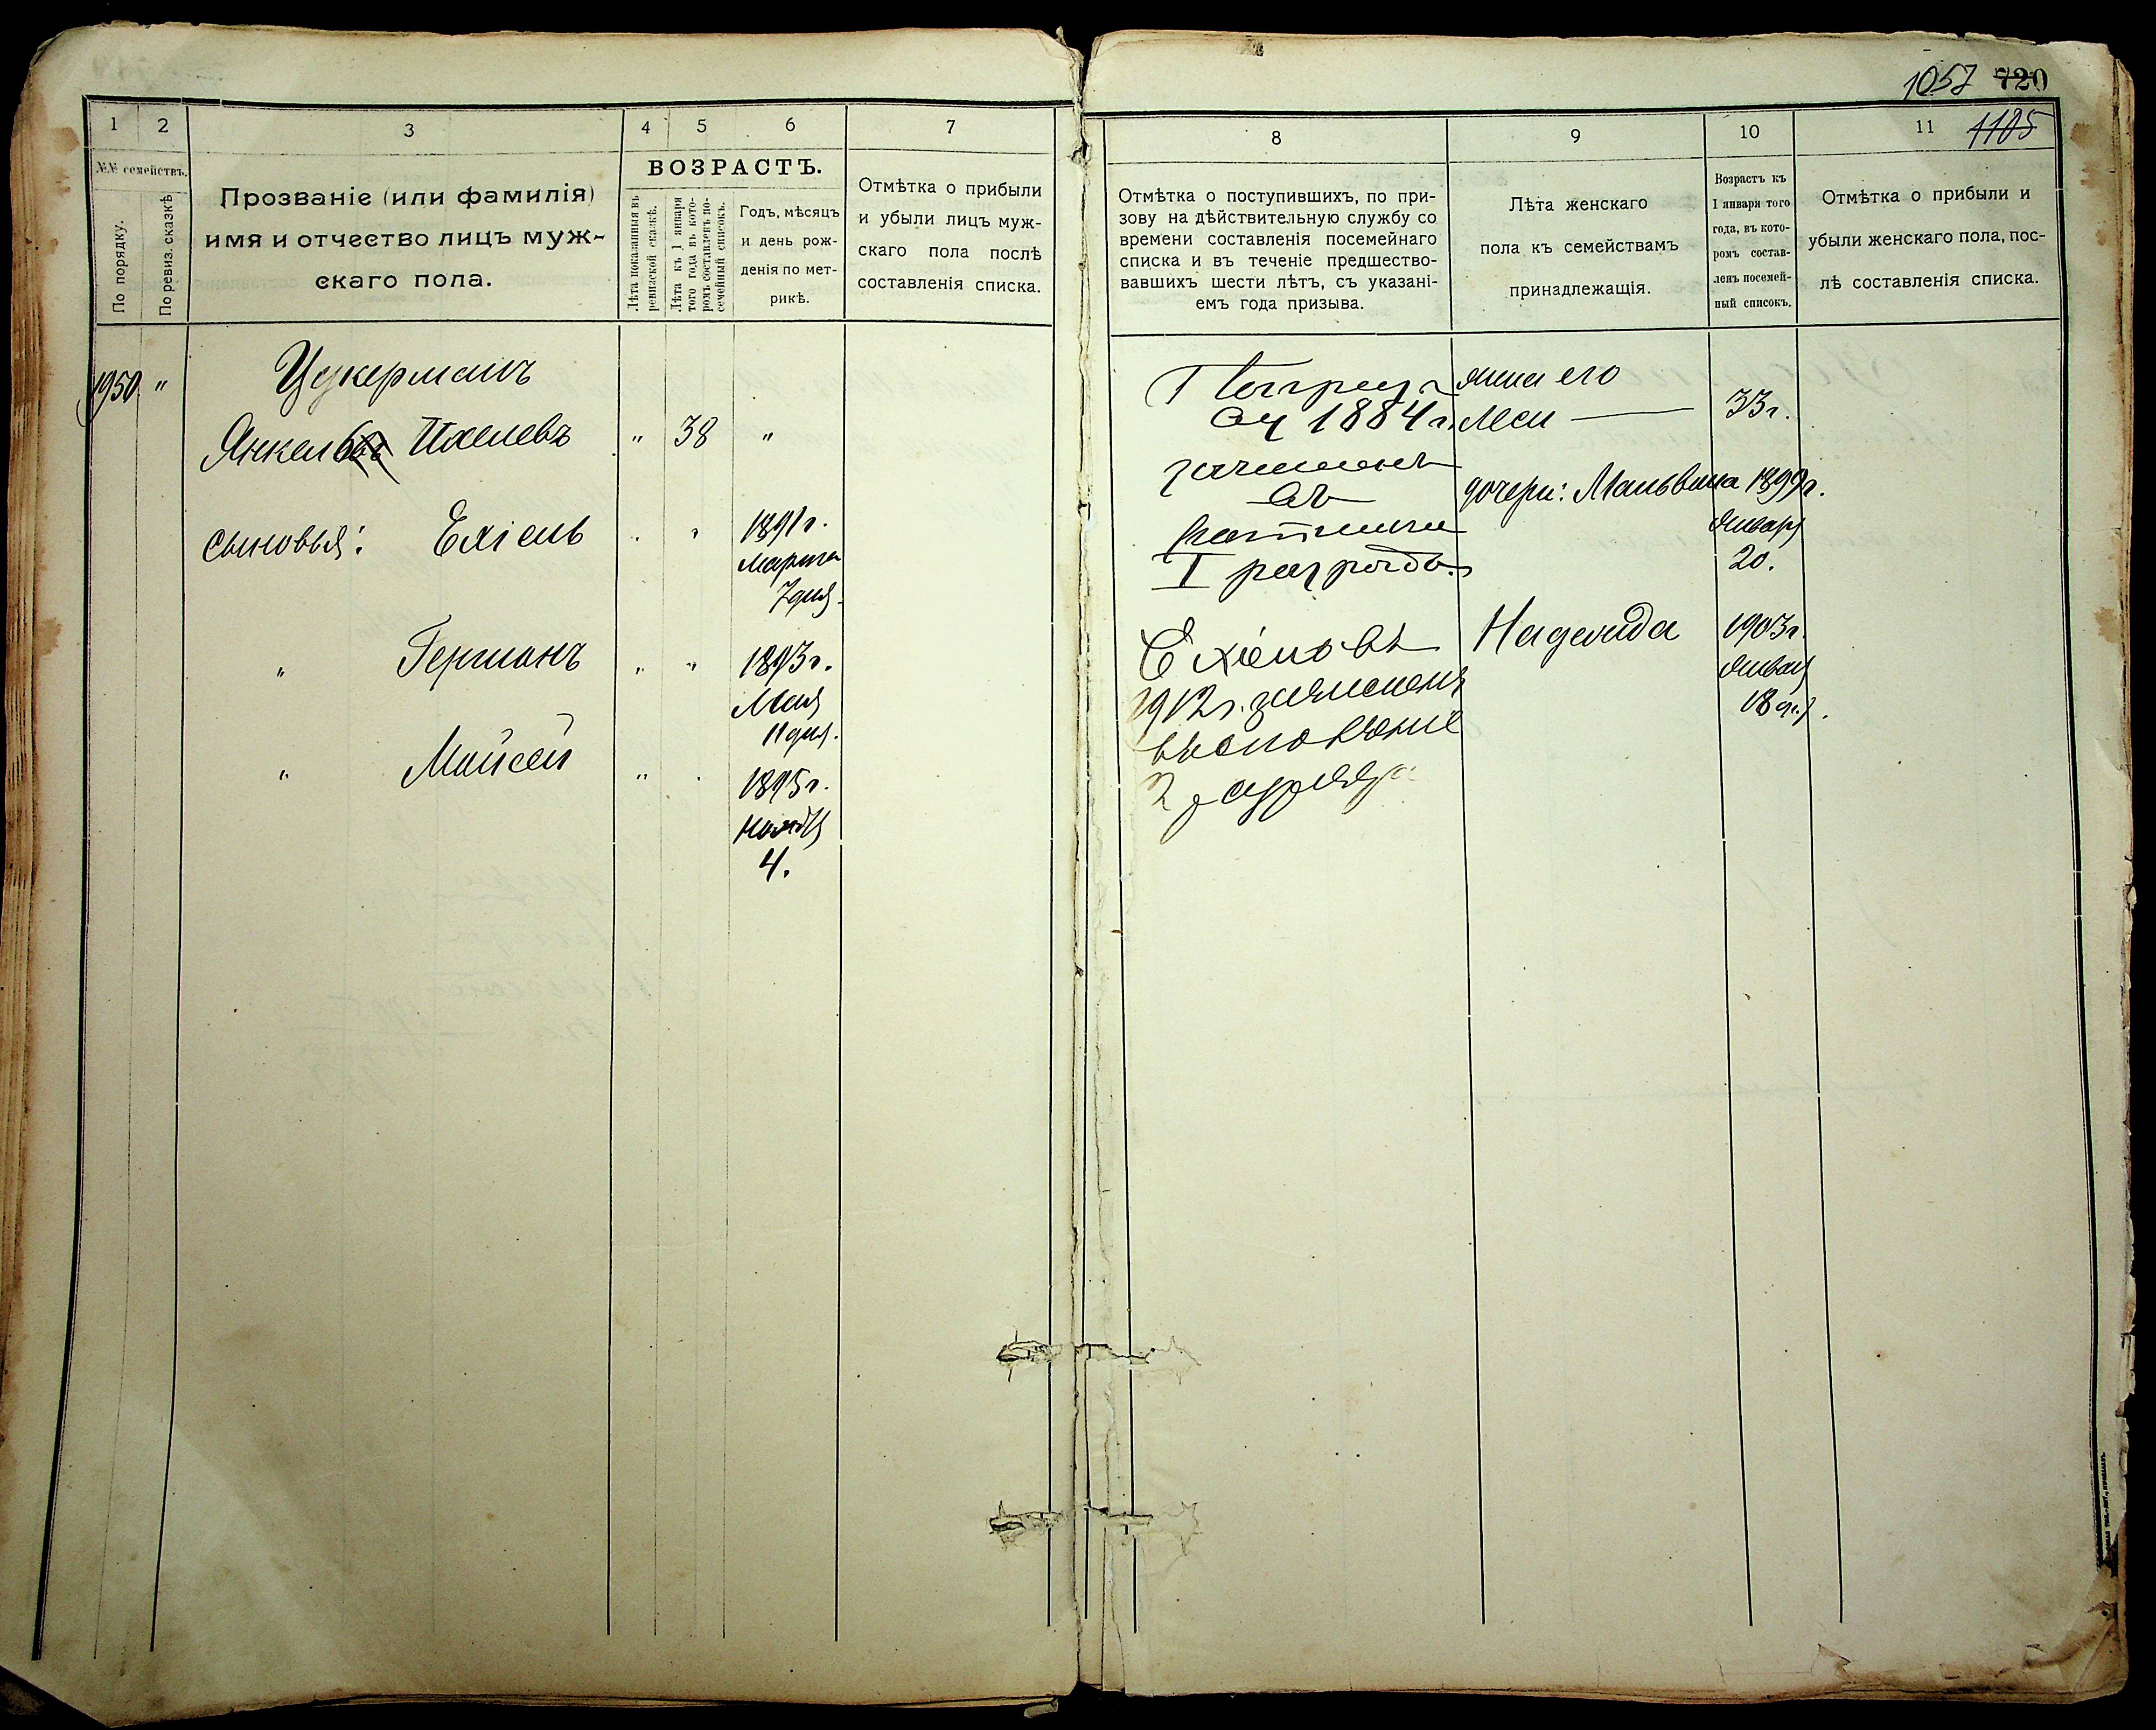 1057 720
1 2 3 4 5 6 7
№№ семействъ.
По порядку.
По ревиз. сказкѣ
Прозваніе (или фамилія)
имя и отчество лицъ муж-
скаго пола.
ВОЗРАСТЪ.
Лѣта показанныя въ
ревизской сказкѣ.
Лѣта къ 1 января
того года въ кото-
ромъ составленъ по-
семейный списокъ.
Годъ, мѣсяцъ
и день рож-
денія по мет-
рикѣ.
Отмѣтка о прибыли
и убыли лицъ муж-
скаго пола послѣ
составленія списка.
1950 " Цукерманъ
Янкель Ихелевъ " 38 "
сыновья: Ехіель " " 1891 г.
Марта
7 дня.
" Германъ " " 1893 г.
Мая
11 дня.
" Мойсей " " 1895 г.
Ноября
4.
8 9 10 11 1105
Отмѣтка о поступившихъ, по при-
зову на дѣйствительную службу со
времени составленія посемейнаго
списка и въ теченіе предшество-
вавшихъ шести лѣтъ, съ указані-
емъ года призыва.
Лѣта женскаго
пола къ семействамъ
принадлежащія.
Возрастъ къ
1 января того
года, въ кото-
ромъ состав-
ленъ посемей-
ный списокъ.
Отмѣтка о прибыли и
убыли женскаго пола, пос-
лѣ составленія списка.
1884 г.
зачисленъ
въ
ратники
I разряда.
Ехіель въ
1912 г. зачисленъ
въ ополченіе
2 разряда
жена его
Леси 33 г.
дочери: Мальвина 1899 г.
Января
20.
Надежда 1903 г.
Января
18 д.